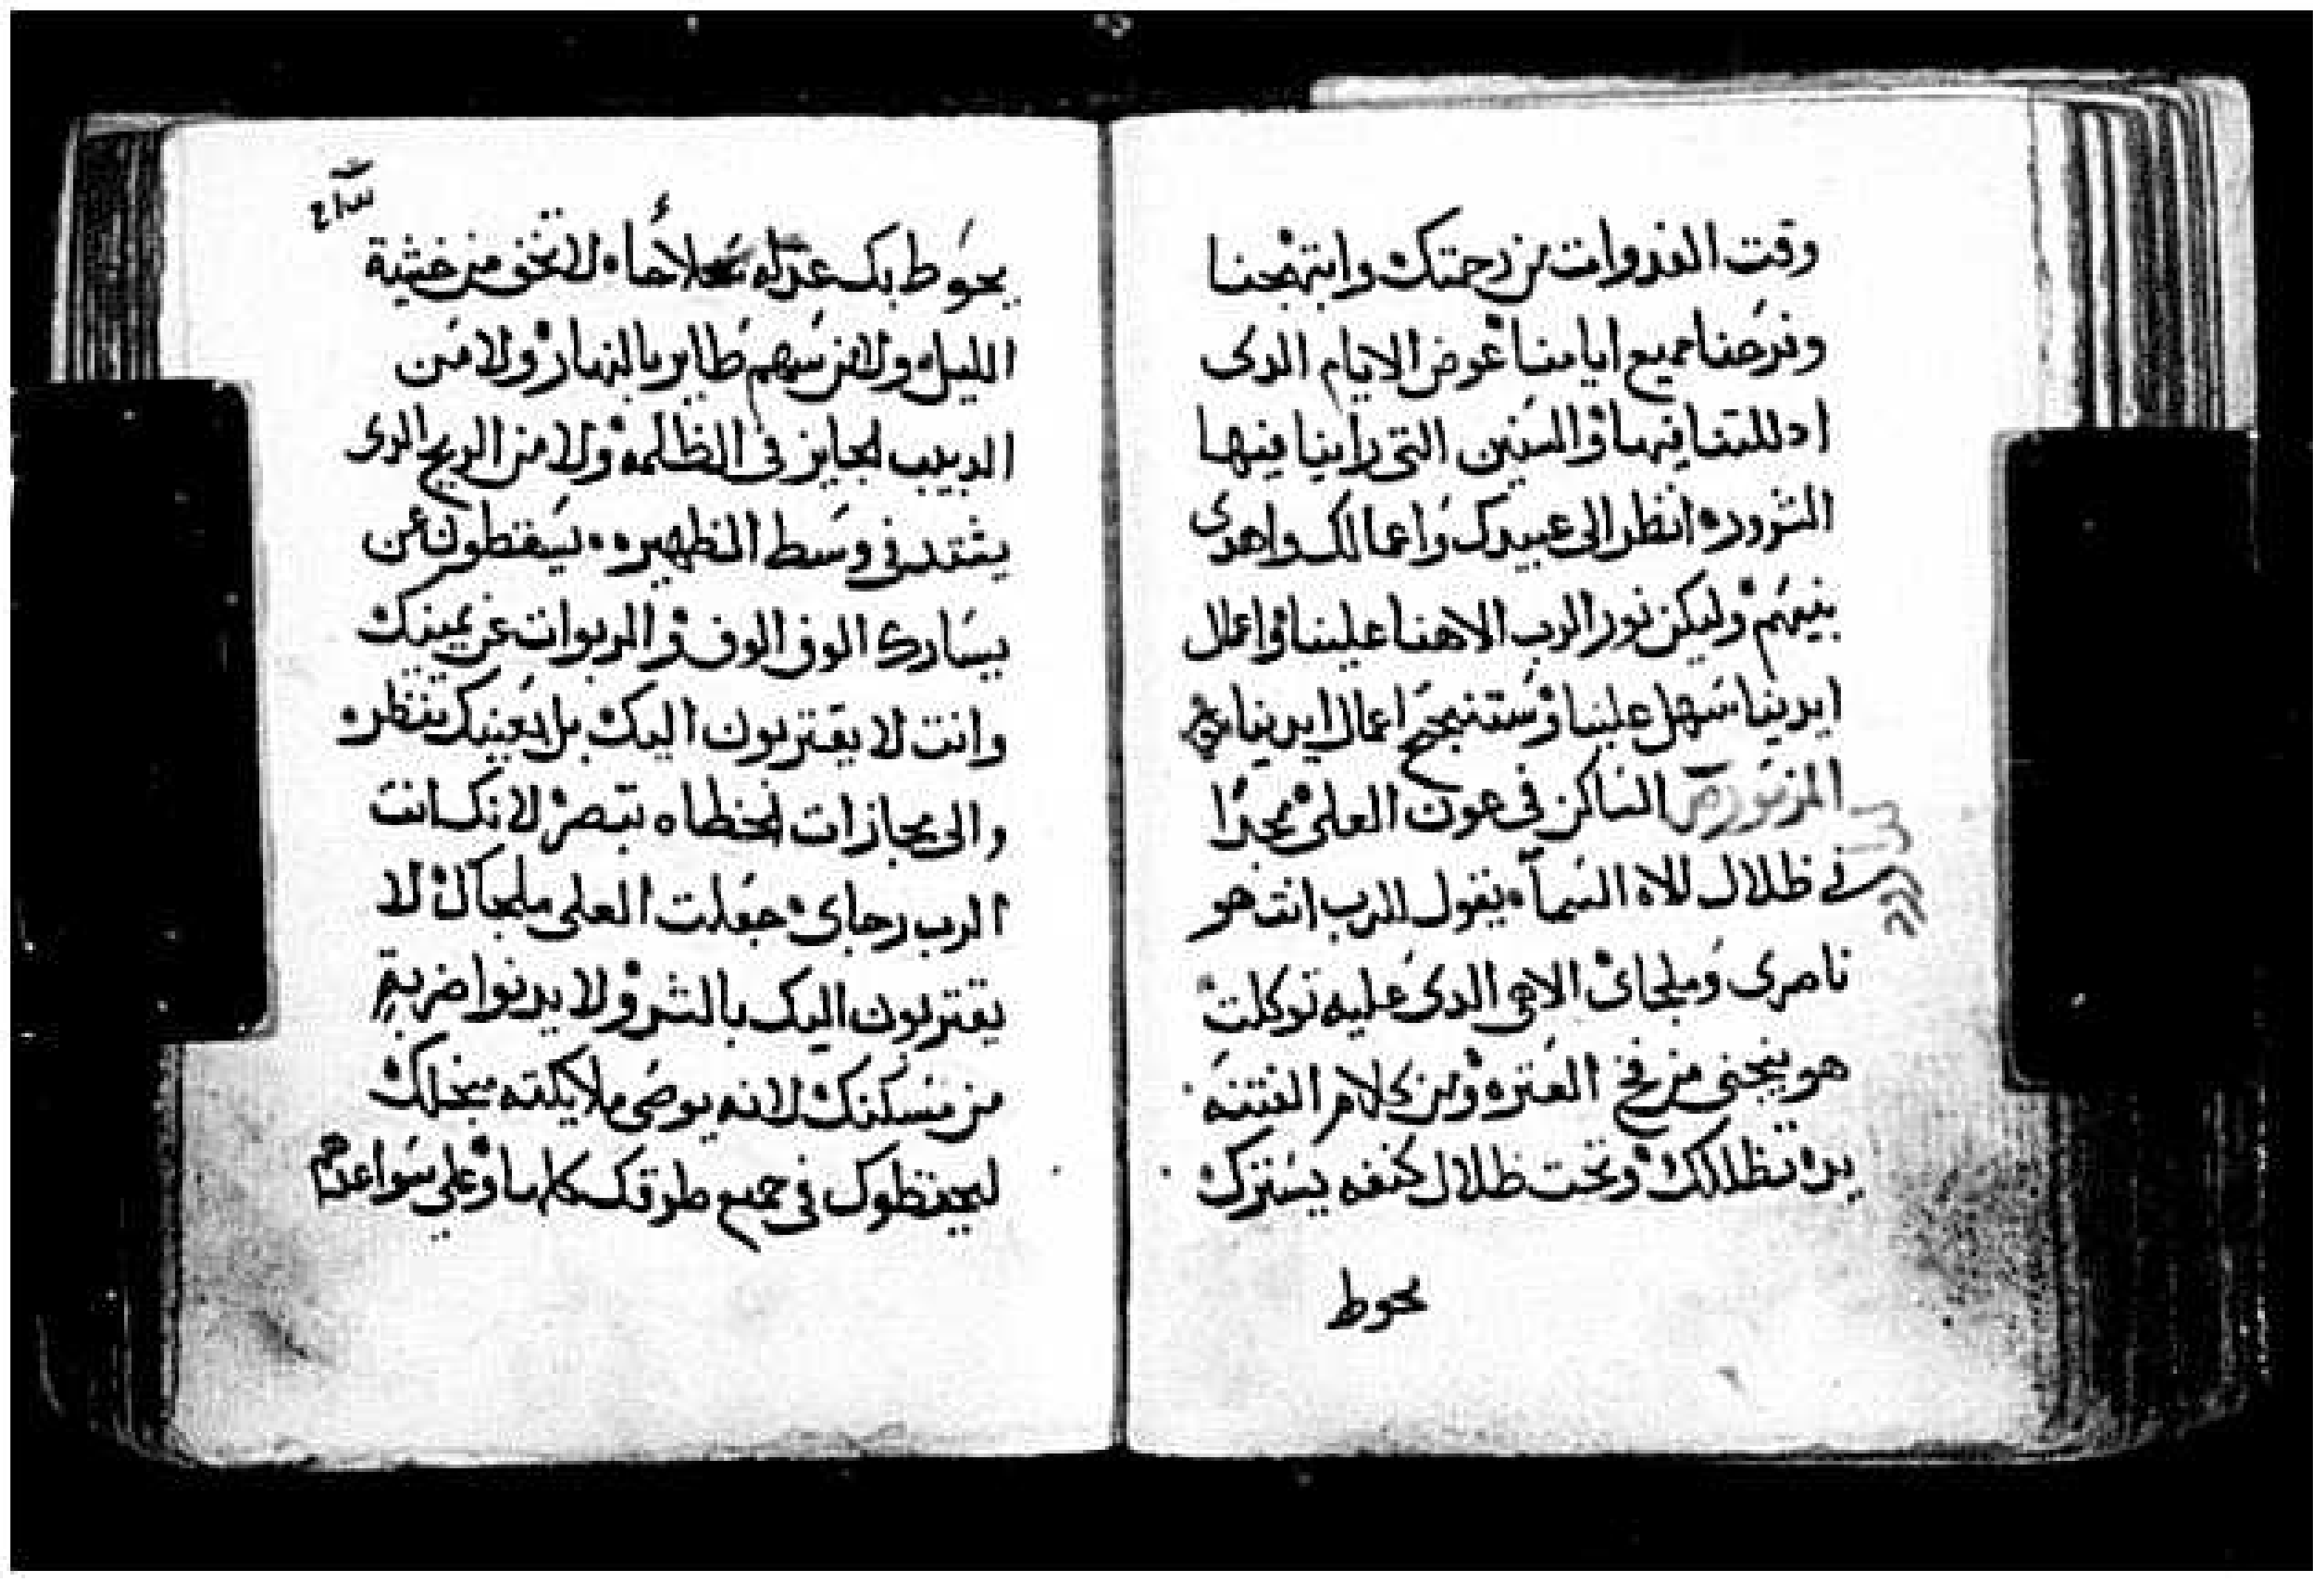 وقت الغدوات من رحمتك وابتهجنا
وفرحنا جميع ايامنا عوض الايام الدى
ادللتنا فيها والسنين التى راينا فيها
الشرور انظر الى عبيدك واعمالك واهدى
بنيهم وليكن نور الرب الاهنا علينا واعمال
ايدينا سهل علينا وستنجح اعمال ايدينا
المزمور الساكن فى عون العلى
فى ظلال الاه السمآ يقول للرب انت هو
ناصرى وملجاى الاهى الدى عليه توكلت
هو ينجنى من فخ العثره ومن كلام الفتنه
يده تظللك وتحت ظلال كنفه يسترك
يحوط
يحوط بك عدله سلاحا لا تخف من خشية
الليل ولا من سهم طاير بالنهار ولا من
الدبيب الجايز فى الظلمه ولا من الريح الدى
يشتد فى وسط الظهيره يسقطون عن
يسارك الوف الوف والربوات عن يمينك
وانت لا يقتربون اليك بل بعينيك تنظر
والى مجازات الخطاه تبصر لانك انت
الرب رجاى جعلت العلى ملجاك لا
يقتربون اليك بالشر ولا يدنوا ضربة
من مسكنك لانه يوصى ملايكته من اجلك
ليحفظوك فى جميع طرقك كلها وعلى سواعدهم